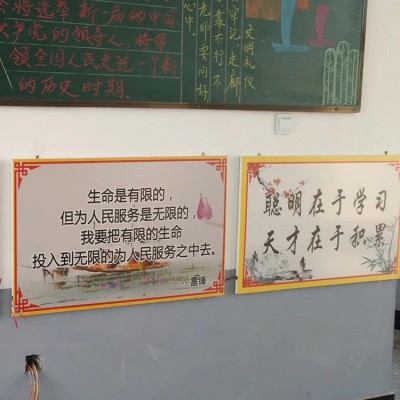 会将选举新一届的中国
共产党的领导人，将带
领全国人民走进一个新
的历史时期。
老师要问好
心中。
牢记，走廊
靠右行不
文明礼仪
生命是有限的，
但为人民服务是无限的，
我要把有限的生命
投入到无限的为人民服务之中去。
··雷锋
聪明在于学习
天才在于积累